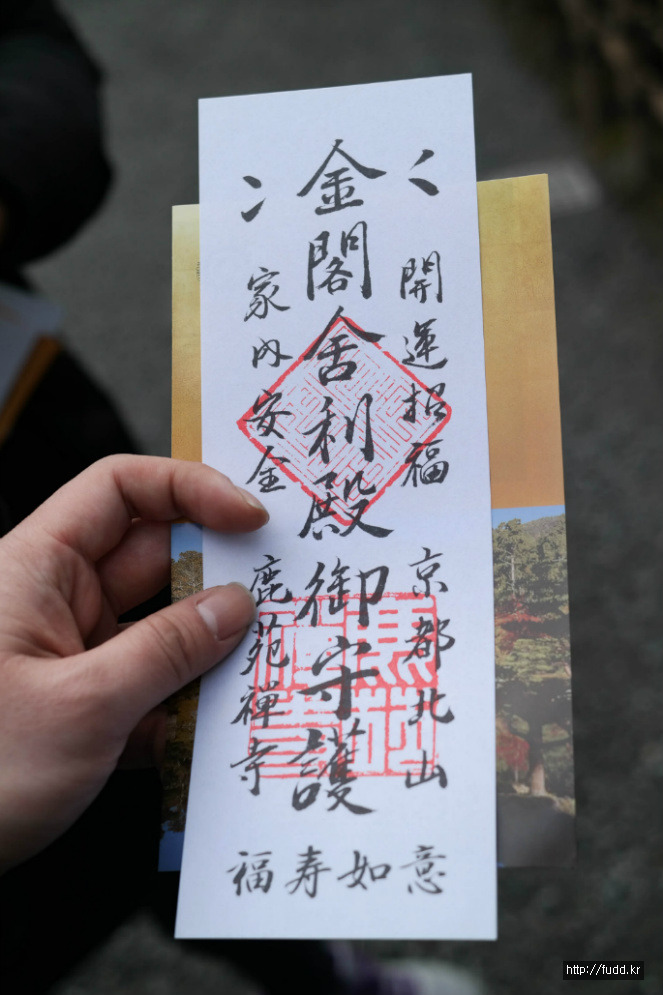 金閣舎利殿御守護
開運招福
京都北山
家内安全
鹿苑禅寺
福寿如意
http://fudd.kr